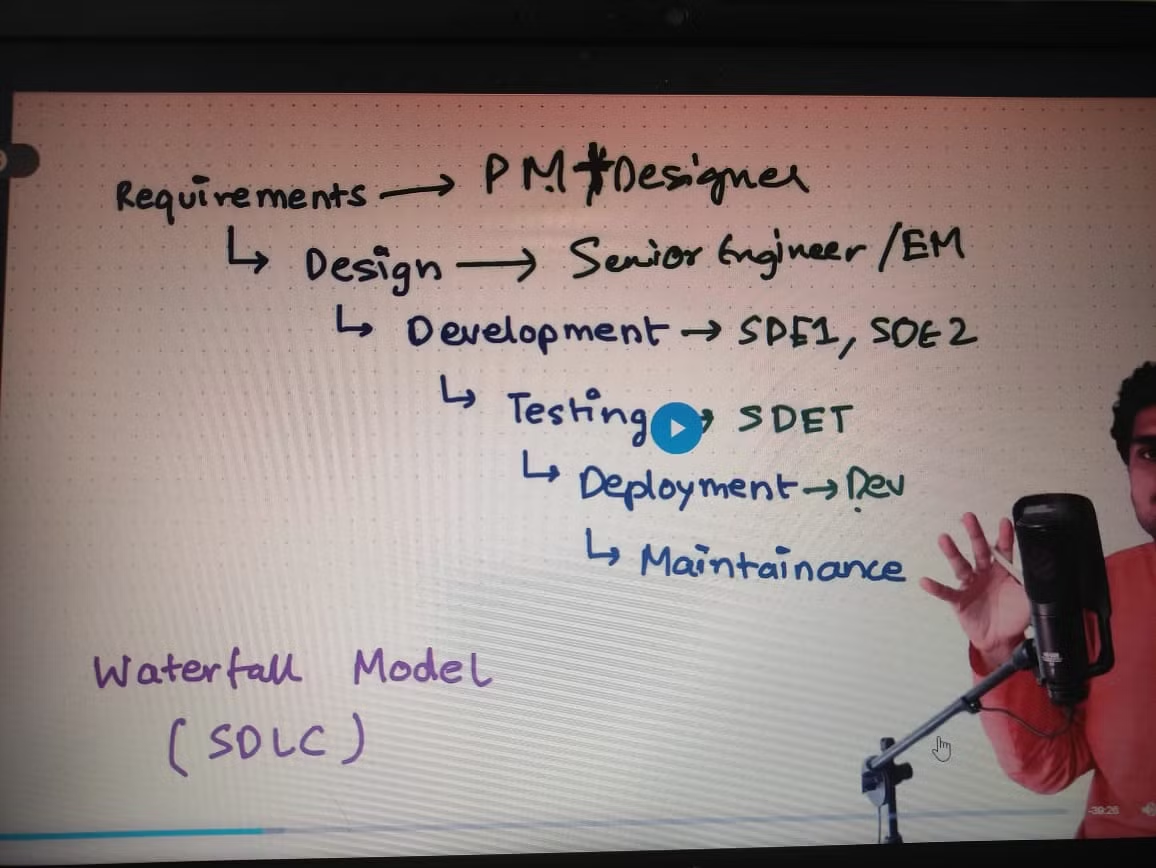 Requirements → PM + Designer
↳ Design → Senior Engineer /EM
↳ Development → SDE1, SDE2
↳ Testing → SDET
↳ Deployment → Dev
↳ Maintainance
Waterfall Model
(SDLC)
-39:26